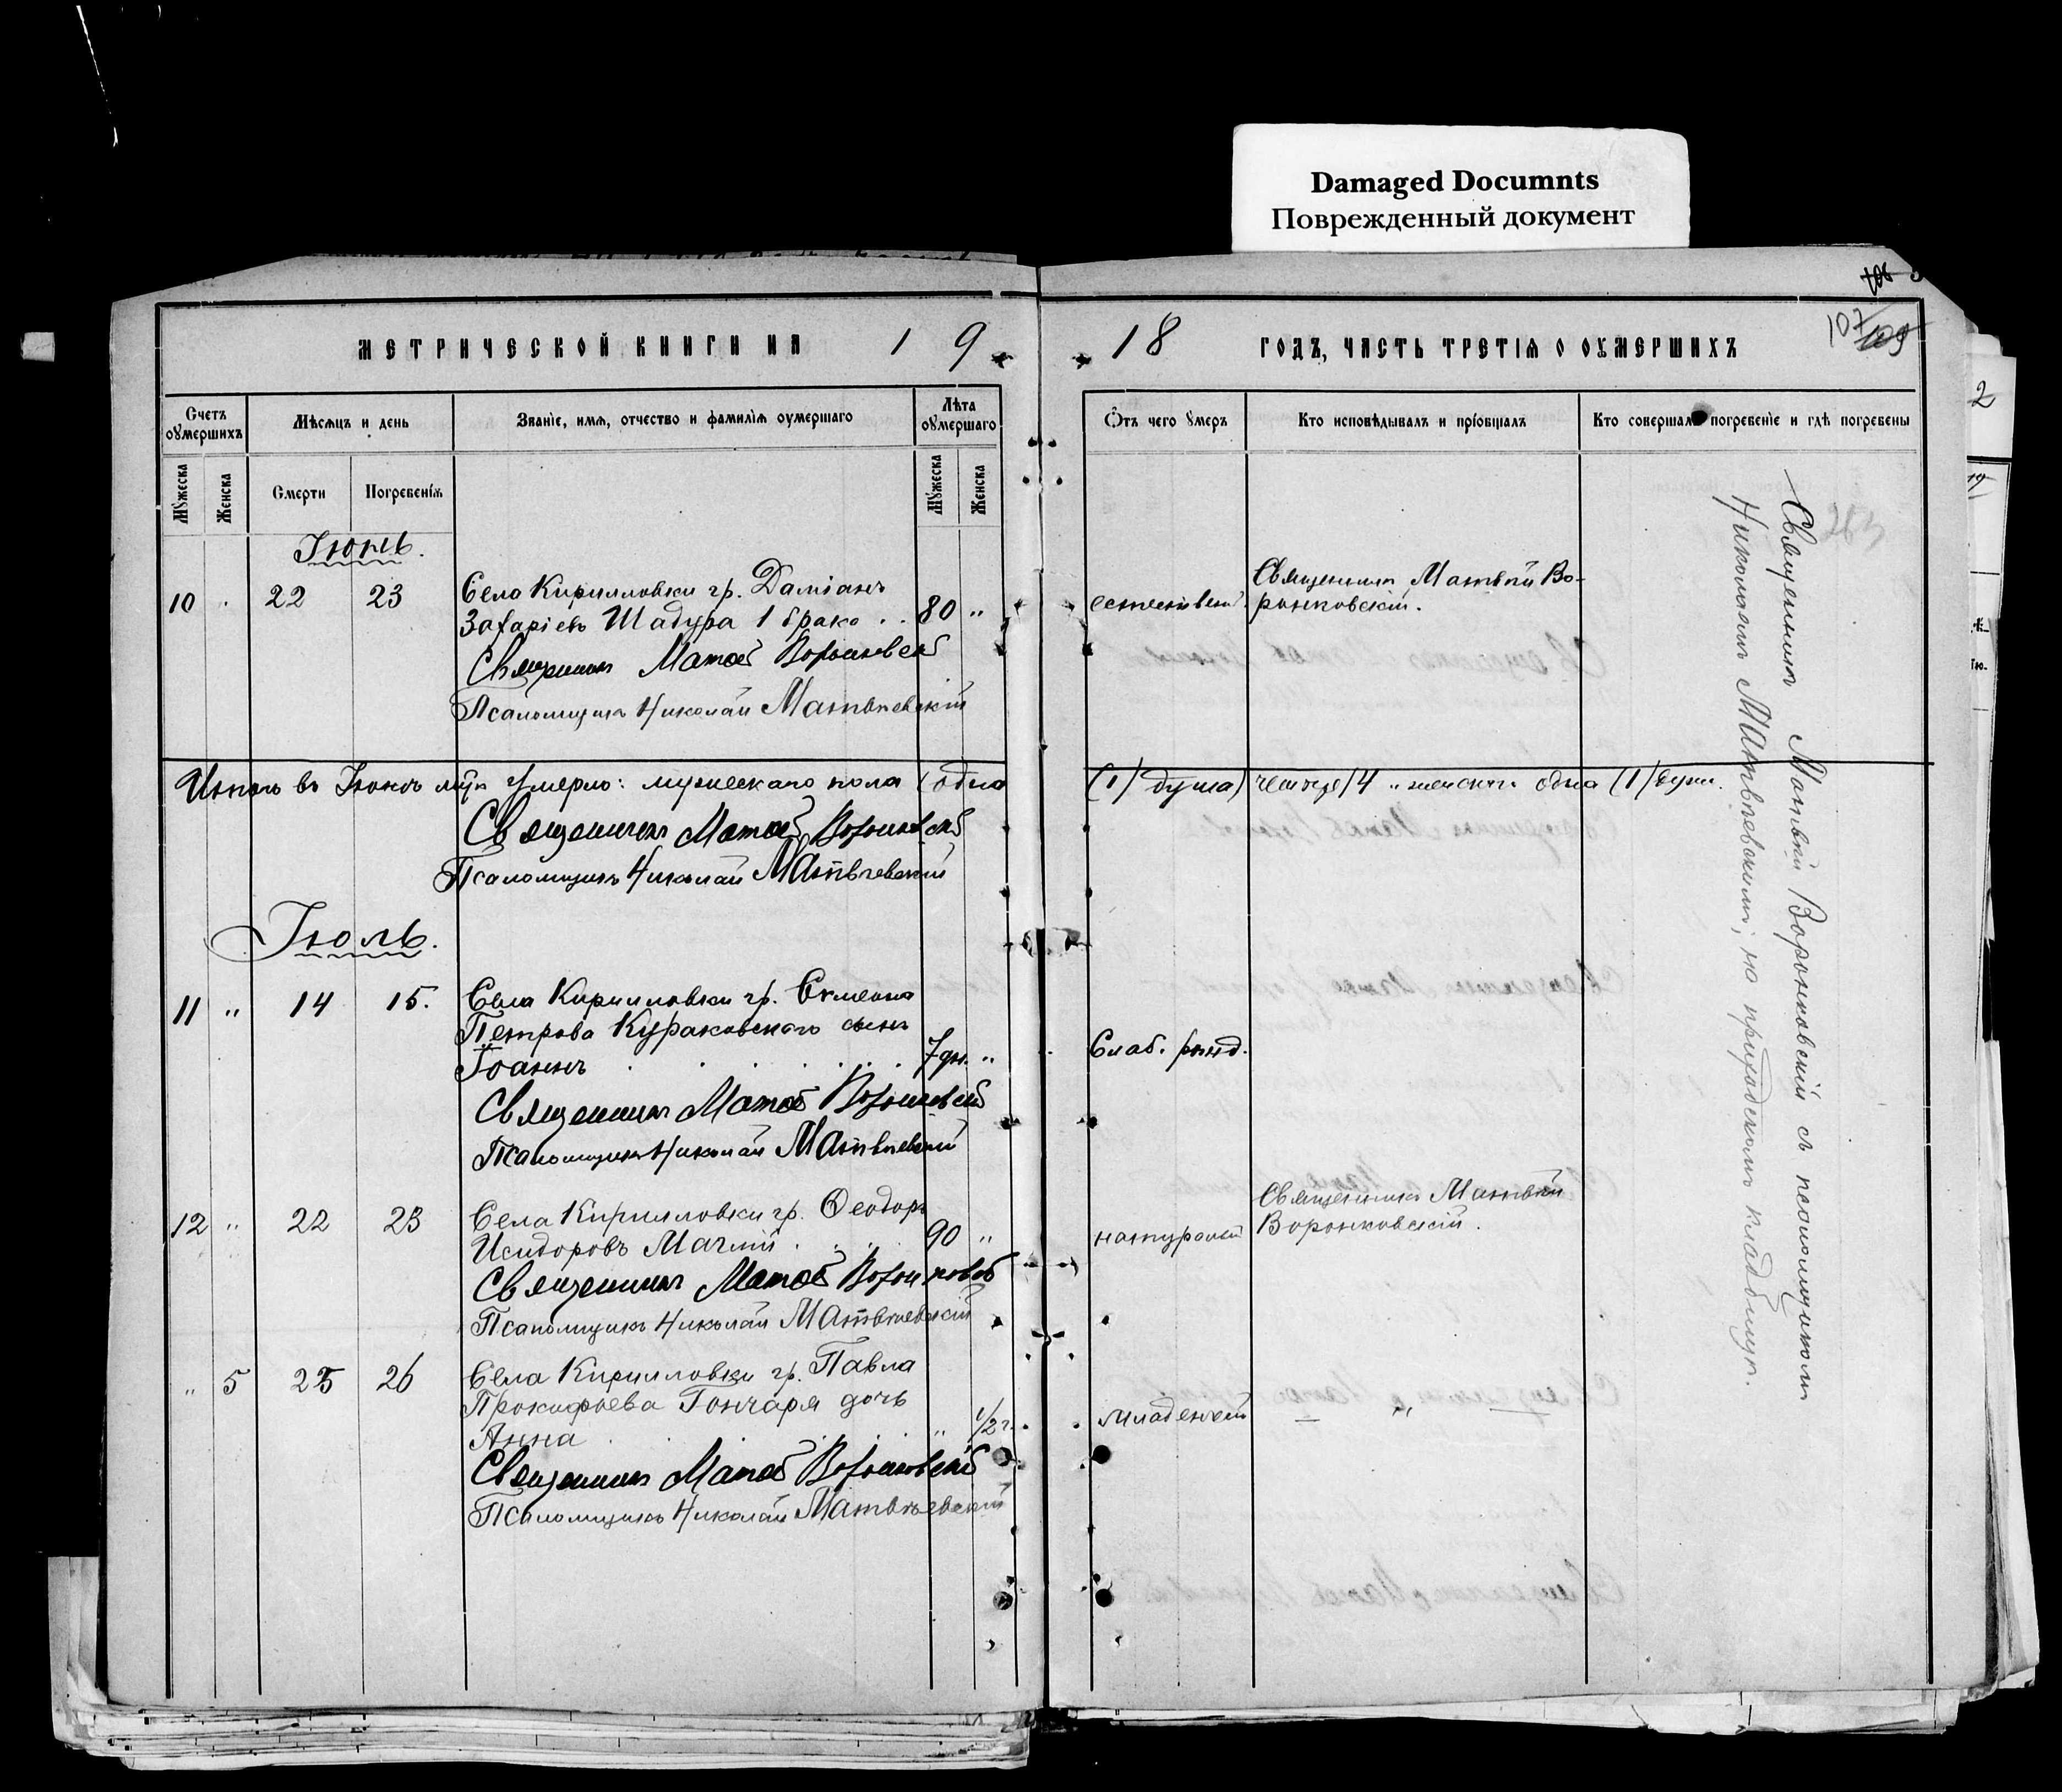 Damaged Documnts
Поврежденный документ
МЕТРИЧЕСКОЙ КНИГИ НА 1 9
18 ГОДЪ, ЧАСТЬ ТРЕТІЯ О ОУМЕРШИХЪ
107
Счетъ оумершихъ
Мѣсяцъ и день
Званіе, имя, отчество и фамилія оумершаго
Лѣта оумершаго
Отъ чего оумеръ
Кто исповѣдывалъ и пріобщалъ
Кто совершалъ погребеніе и гдѣ погребены
Мужеска
Женска
Смерти
Погребенія
Мужеска
Женска
Іюнь.
10 " 22 23 Села Кирилловки гр. Даміанъ
Захаріевъ Шадура 1 брака . . 80 "
Священникъ Матвѣй Воронковскій
Псаломщикъ Николай Матвѣевскій
Священникъ Матвѣй Во-
ронковскій.
Итого въ Іюнѣ м-цѣ умерло: мужескаго пола (одна
(1) душа)
одна (1) душа.
Священникъ Матвѣй Воронковскій
Псаломщикъ Николай Матвѣевскій
Іюль.
11 " 14 15. Села Кирилловки гр.
Петрова Кураковскаго сынъ
Іоаннъ 7 дн. "
Слаб. рожд.
Священникъ Матвѣй Воронковскій
Псаломщикъ Николай Матвѣевскій
12 " 22 23 Села Кирилловки гр. Ѳеодоръ
Исидоровъ 90 "
Священникъ Матвѣй
Воронковскій.
Священникъ Матвѣй Воронковскій
Псаломщикъ Николай Матвѣевскій
" 5 25 26 Села Кирилловки гр. Павла
Прокофьева Гончаря дочь
Анна " 1/2 г.
— " —
Священникъ Матвѣй Воронковскій
Псаломщикъ Николай Матвѣевскій
Священникъ Матвѣй Воронковскій съ псаломщикомъ
Николаемъ Матвѣевскимъ, на приходскомъ кладбищѣ.
263
2